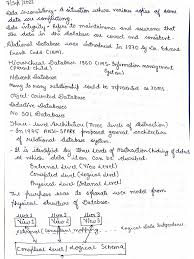 Data inconsistency : A situation where various copies of same
data are conflicting.
Data integrity : refers to maintenance and assurance that
the data in the database are correct and consistent.
Relational database was introduced in 1970 by Dr. Edgar
Frank Codd (IBM).
Hierarchical Database 1960 (IMS - Information management
(parent child) System)
Network Database
Many to many relationship could be represented
Object Oriented Database
Deductive Databases
No SQL Database
Three level Architecture (Three levels of abstraction)
- In 1975 ANSI-SPARC proposed general architecture
of relational database system.
It is identified by three levels of Abstraction (hiding of data)
at which data item can be described.
External level (View Level)
Conceptual Level (Logical Level)
Physical Level (Internal Level)
The purpose was to separate user model from
physical structure of Database.
User 1 User 2 User 3
View 1 View 2 View 3
External/Conceptual mapping Logical data Independence
Conceptual Level / Logical Schema